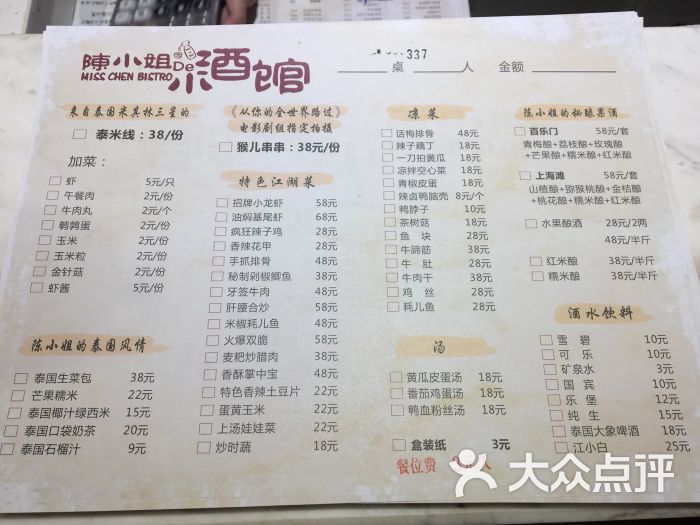 陳小姐De酒馆
MISS CHEN BISTRO
337
桌 人 金额
来自泰国米其林三星的
泰米线：38/份
加菜：
虾 5元/只
午餐肉 2元/份
牛肉丸 2元/个
鹌鹑蛋 2元/份
玉米 2元/份
玉米粒 2元/份
金针菇 2元/份
虾酱 5元/份
陈小姐的泰国风情
泰国生菜包 38元
芒果糯米 22元
泰国椰汁绿西米 15元
泰国口袋奶茶 20元
泰国石榴汁 9元
《从你的全世界路过》
电影剧组指定拍摄
猴儿串串：38元/份
特色江湖菜
招牌小龙虾 58元
油焖基尾虾 68元
疯狂辣子鸡 58元
香辣花甲 38元
手抓排骨 48元
秘制剁椒鲫鱼 38元
牙签牛肉 48元
肝腰合炒 58元
米椒耗儿鱼 48元
火爆双脆 58元
麦粑炒腊肉 38元
香酥掌中宝 48元
特色香辣土豆片 22元
蛋黄玉米 22元
上汤娃娃菜 22元
炒时蔬 18元
凉菜
话梅排骨 48元
辣子藕丁 18元
一刀拍黄瓜 18元
凉拌空心菜 18元
青椒皮蛋 18元
辣卤鸭脑壳 8元/个
鸭脖子 10元
茶树菇 18元
鱼块 28元
牛蹄筋 38元
牛肚 28元
牛肉干 38元
鸡丝 28元
耗儿鱼 28元
汤
黄瓜皮蛋汤 18元
番茄鸡蛋汤 18元
鸭血粉丝汤 18元
盒装纸 3元
餐位费
陈小姐的秘酿果酒
百乐门 58元/套
青梅酿+荔枝酿+玫瑰酿
+芒果酿+糯米酿+红米酿
上海滩 58元/套
山楂酿+猕猴桃酿+金桔酿
+桃花酿+糯米酿+红米酿
水果酿酒 28元/2两
48元/半斤
红米酿 38元/半斤
糯米酿 38元/半斤
酒水饮料
雪碧 10元
可乐 10元
矿泉水 3元
国宾 10元
乐堡 12元
纯生 15元
泰国大象啤酒 18元
江小白 25元
大众点评